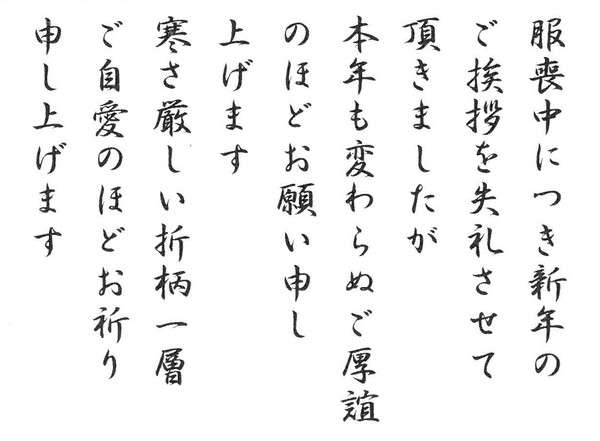 服喪中につき新年の
ご挨拶を失礼させて
頂きましたが
本年も変わらぬご厚誼
のほどお願い申し
上げます
寒さ厳しい折柄一層
ご自愛のほどお祈り
申し上げます